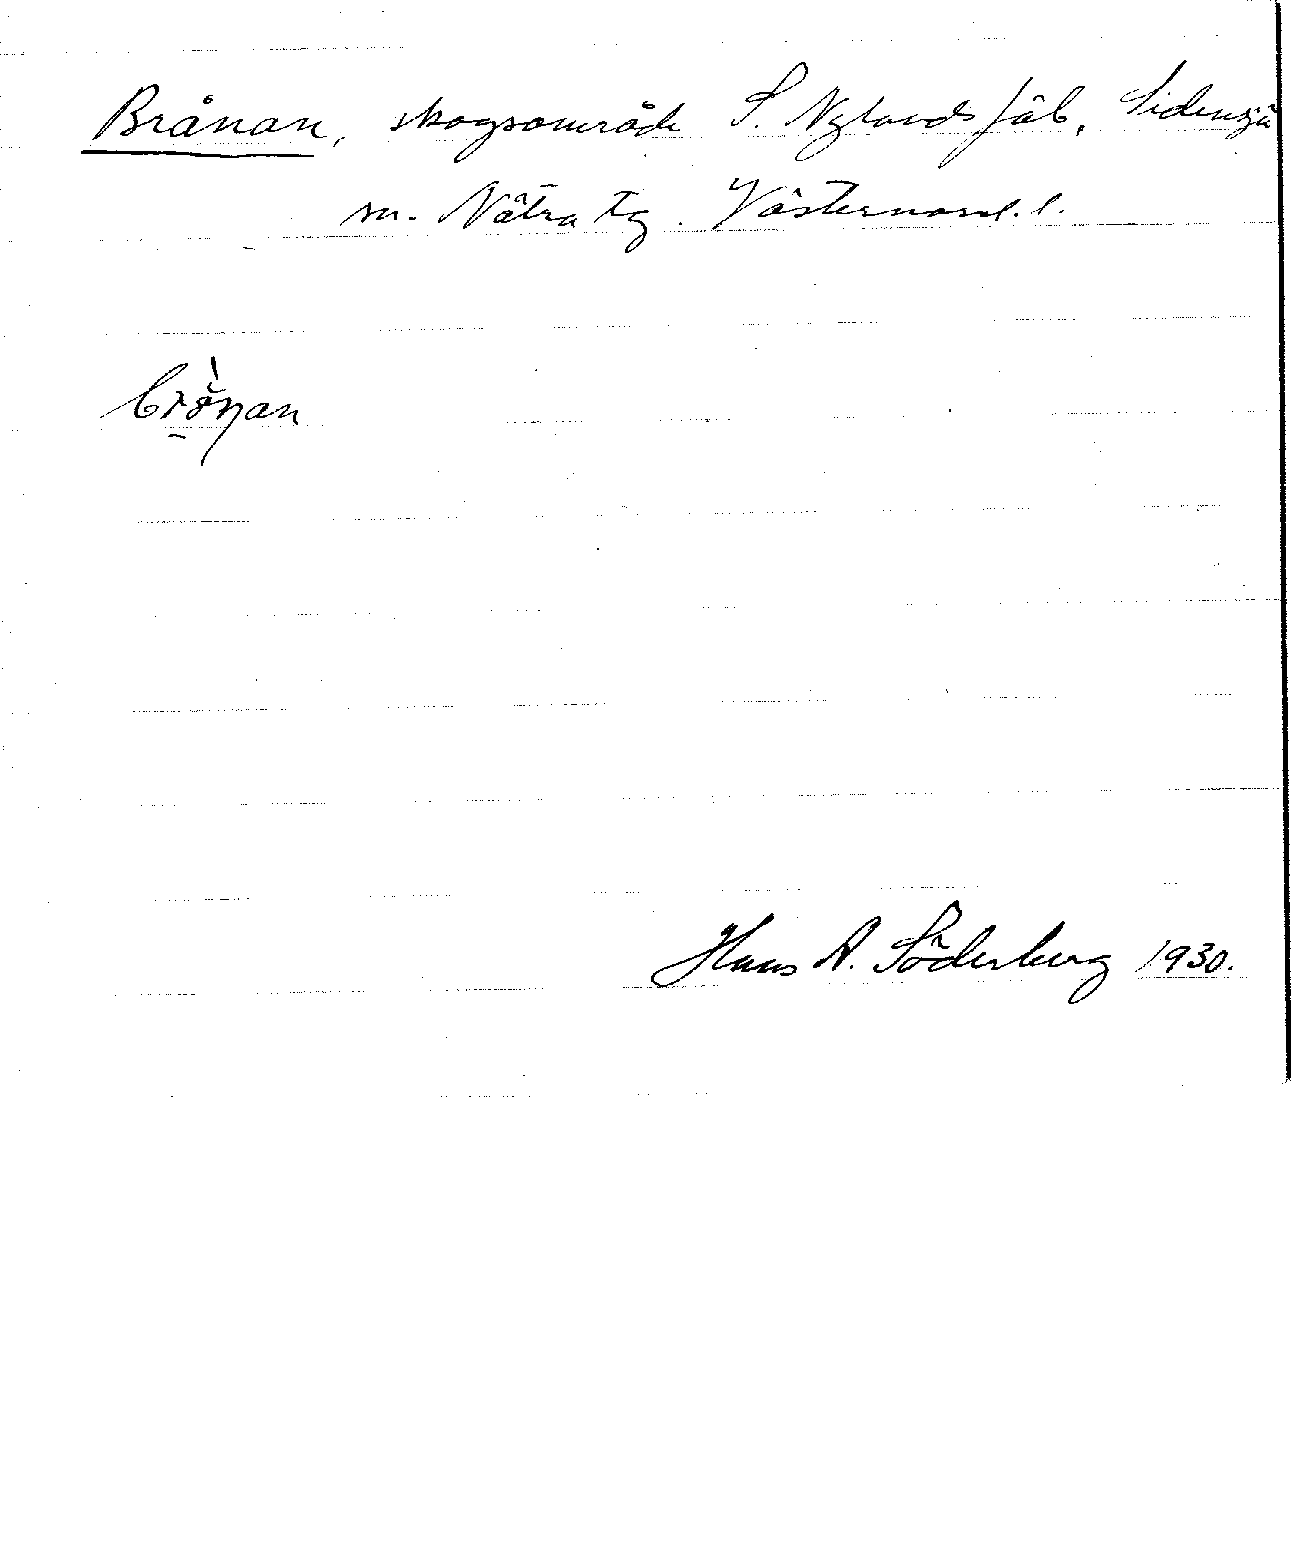 Brånan, skogsområde S. Nylands fäb, Sidensjö
sn. Nätra tg. Västernorrl. l.
Hans A. Söderberg 1930.